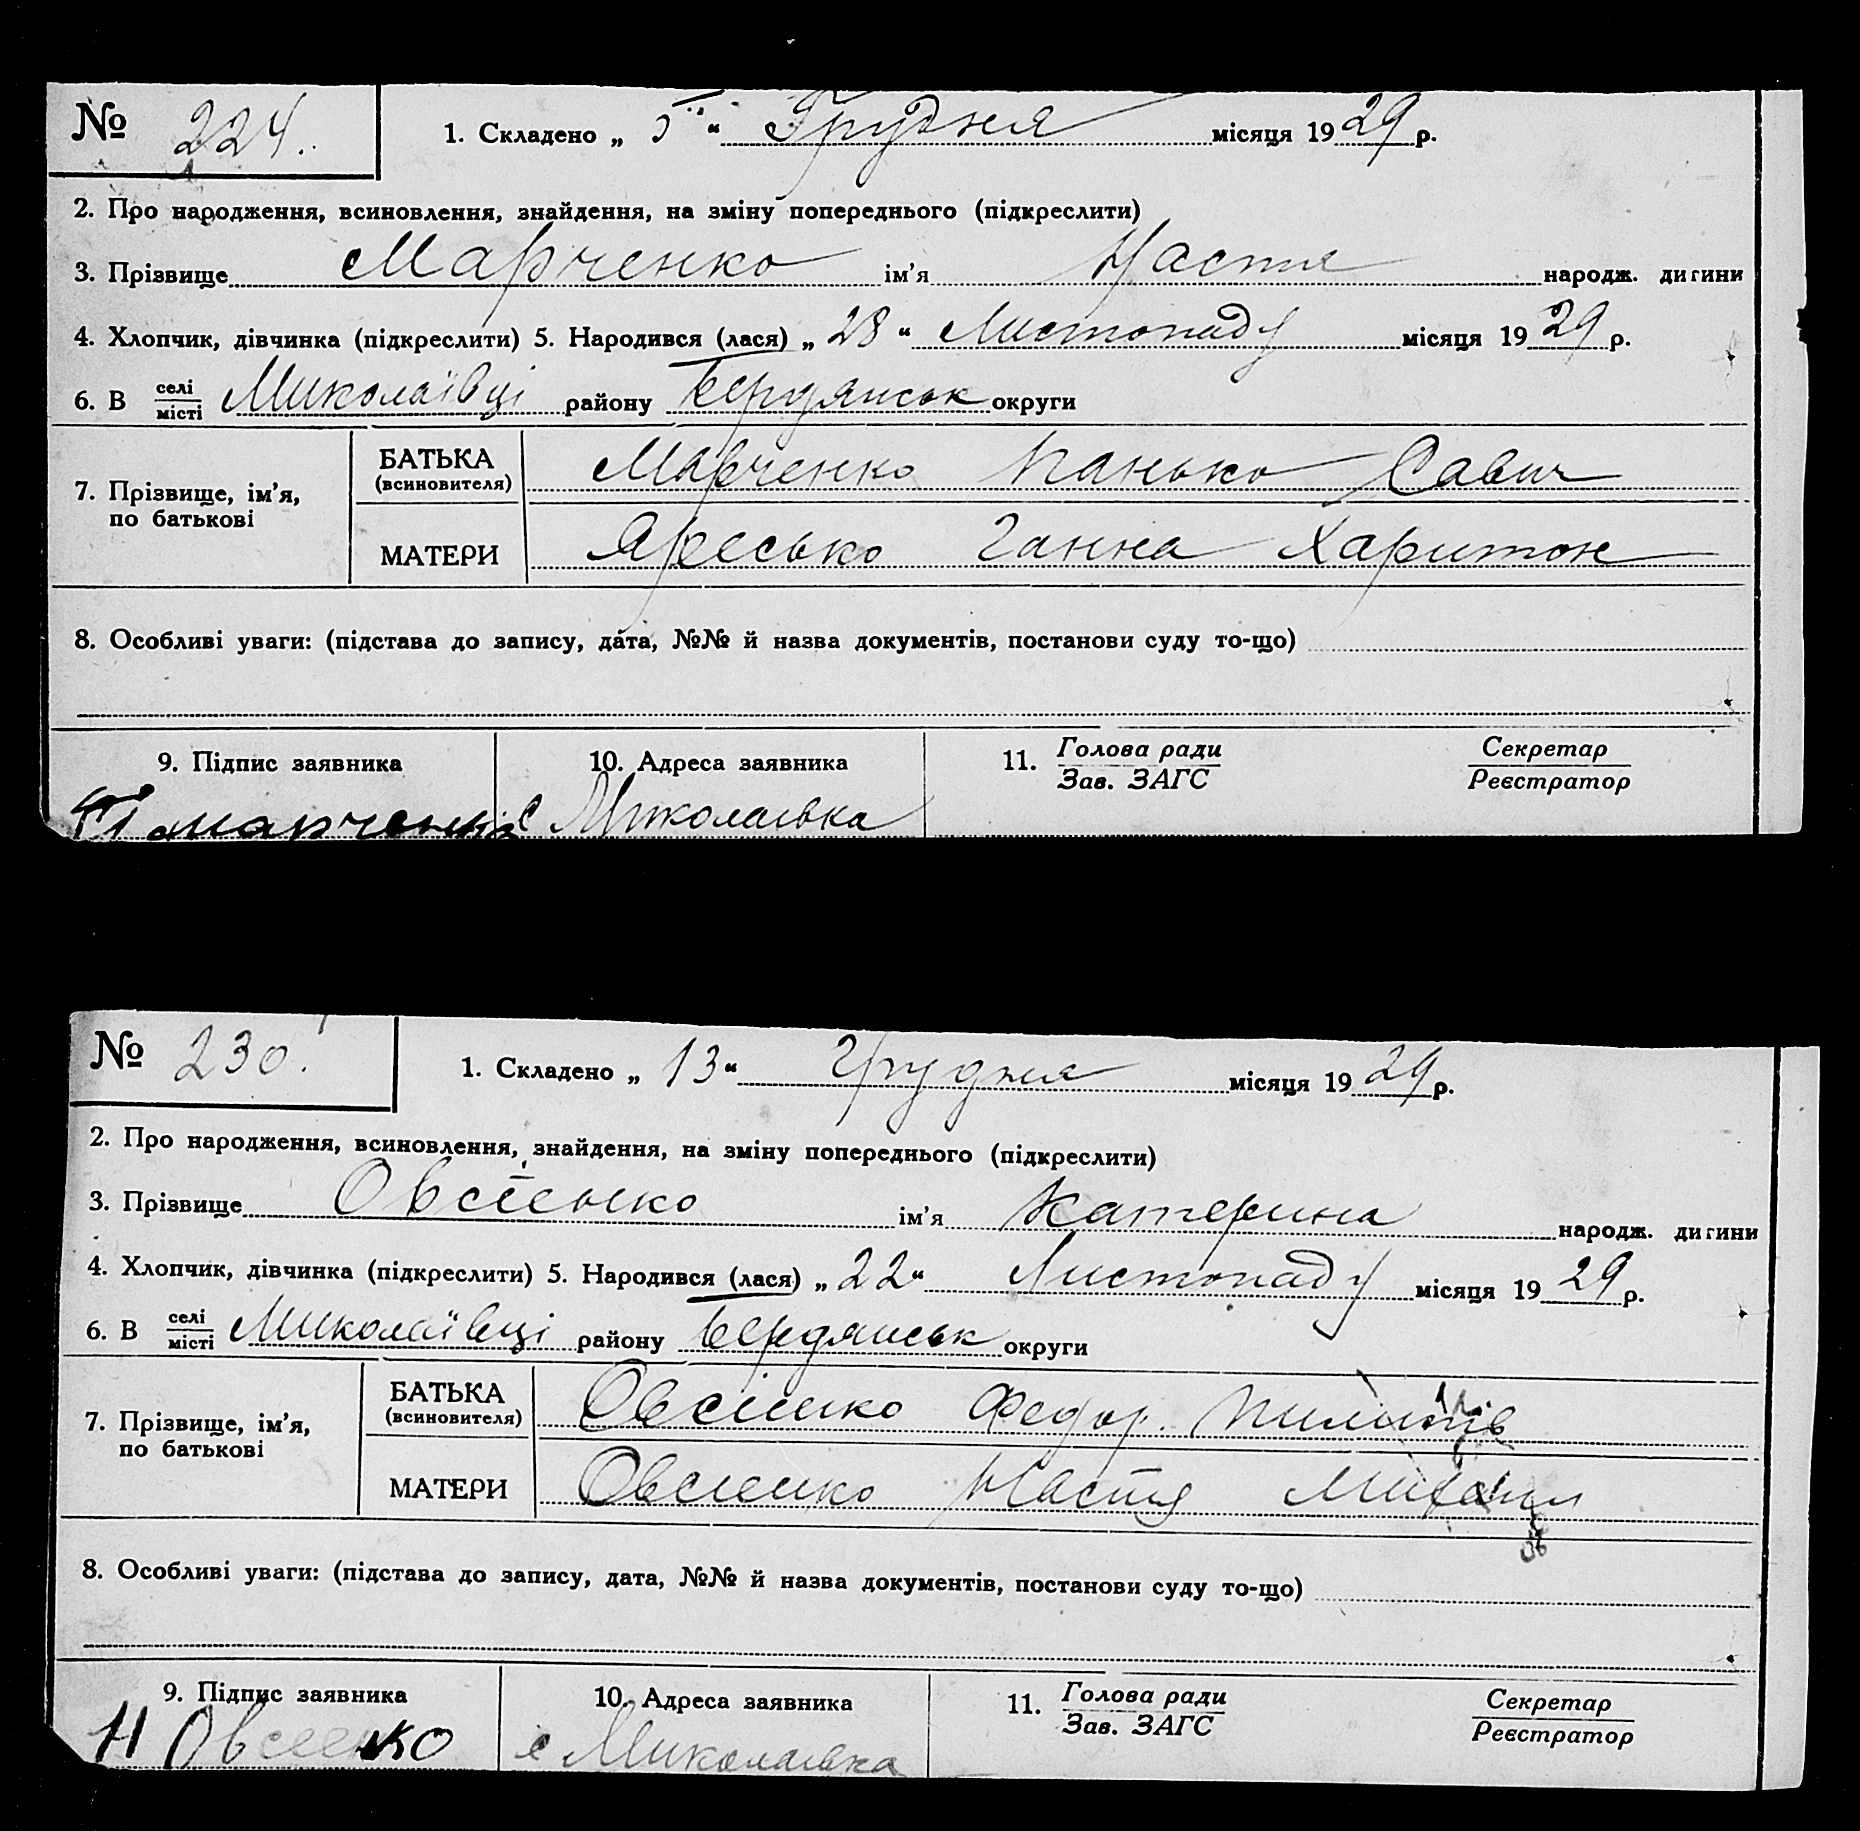 № 224.
1. Складено „ 5 " Грудня місяця 1929 р.
2. Про народження, всиновлення, знайдення, на зміну попереднього (підкреслити)
3. Прізвище Марченко ім'я Настя народж. дитини
4. Хлопчик, дівчинка (підкреслити) 5. Народився (лася) „ 28 " Листопаду місяця 1929 р.
6. В селі/місті Миколаївці району Бердянськ округи
7. Прізвище, ім'я, по батькові
БАТЬКА (всиновителя) Марченко Панько Савич
МАТЕРИ Яресько Ганна Харитон
8. Особливі уваги: (підстава до запису, дата, №№ й назва документів, постанови суду то-що)
9. Підпис заявника 10. Адреса заявника 11. Голова ради/Зав. ЗАГС Секретар/Реєстратор
П Марченко с Миколаівка
№ 230.
1. Складено „ 13 " Грудня місяця 1929 р.
2. Про народження, всиновлення, знайдення, на зміну попереднього (підкреслити)
3. Прізвище Овсіенко ім'я Катерина народж. дитини
4. Хлопчик, дівчинка (підкреслити) 5. Народився (лася) „ 22 " Листопаду місяця 1929 р.
6. В селі/місті Миколаївці району Бердянськ округи
7. Прізвище, ім'я, по батькові
БАТЬКА (всиновителя) Овсіенко Федор. Пилипів
МАТЕРИ Овсіенко Настя
8. Особливі уваги: (підстава до запису, дата, №№ й назва документів, постанови суду то-що)
9. Підпис заявника 10. Адреса заявника 11. Голова ради/Зав. ЗАГС Секретар/Реєстратор
Н Овсеенко с Миколаівка